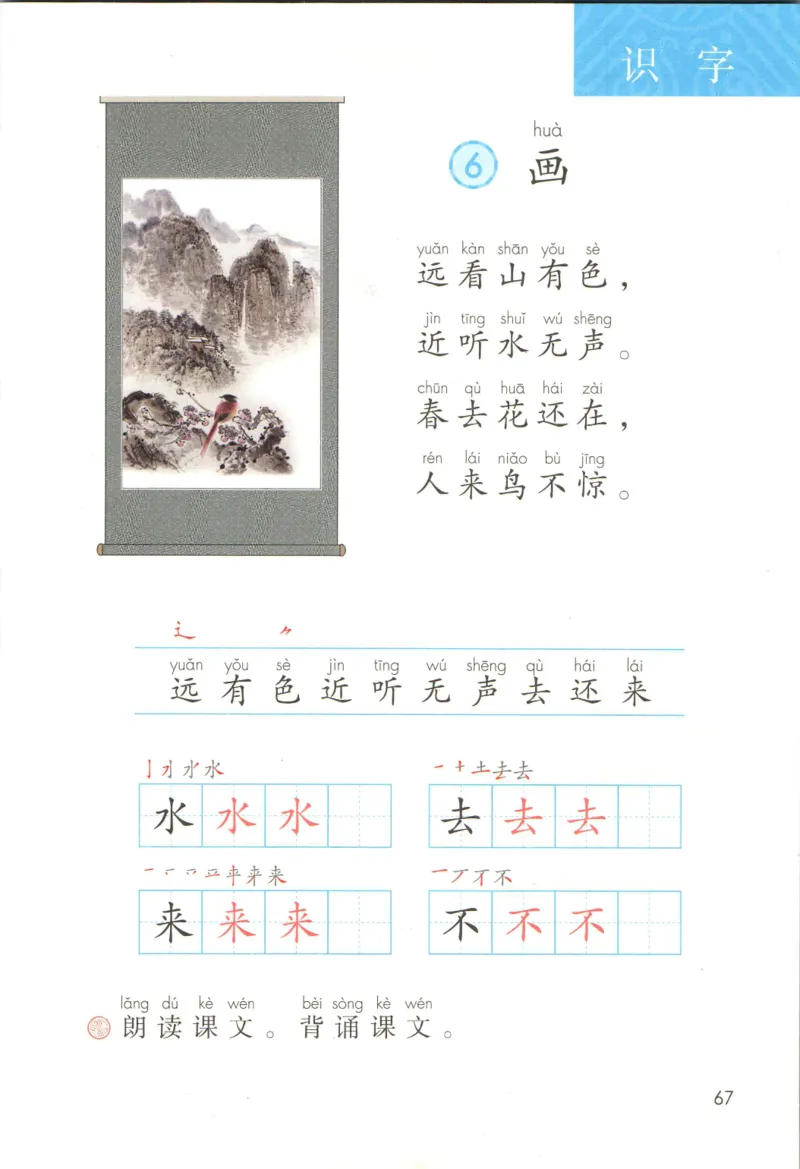 识字
huà
6 画
yuǎn kàn shān yǒu sè
远看山有色，
jìn tīng shuǐ wú shēng
近听水无声。
chūn qù huā hái zài
春去花还在，
rén lái niǎo bù jīng
人来鸟不惊。
辶 〃
yuǎn yǒu sè jìn tīng wú shēng qù hái lái
远有色近听无声去还来
水水水
去去去
来来来
不不不
lǎng dú kè wén bèi sòng kè wén
朗读课文。背诵课文。
67